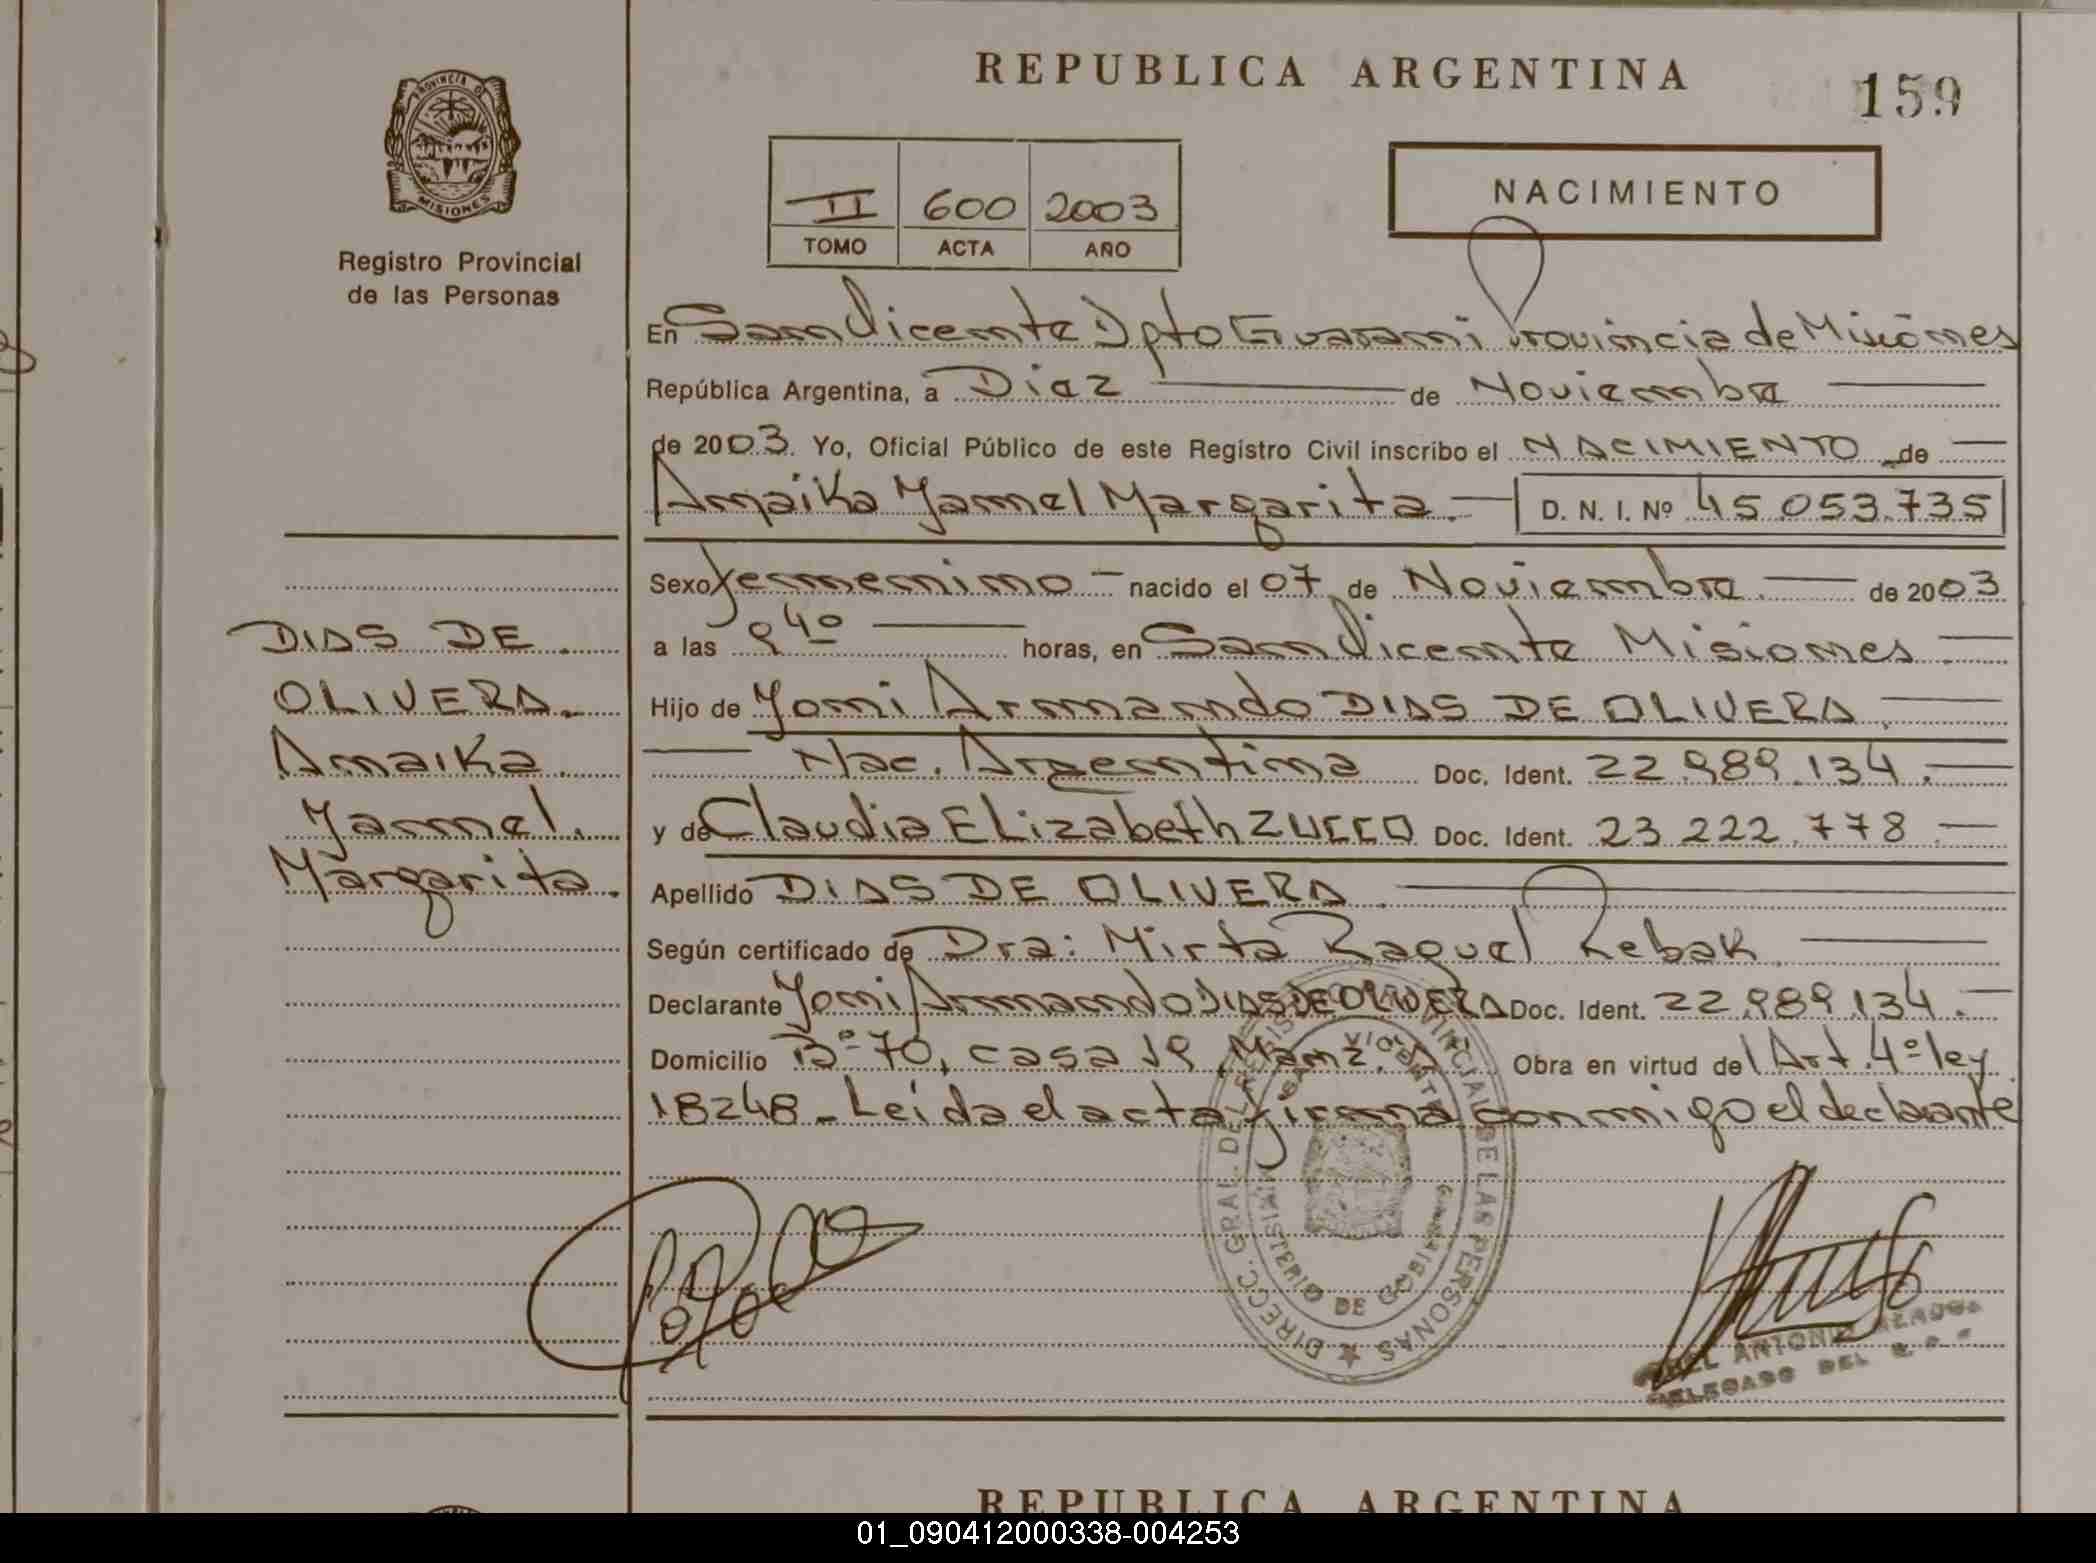 REPUBLICA ARGENTINA
159
PROVINCIA DE
MISIONES
Registro Provincial
de las Personas
II 600 2003
TOMO ACTA AÑO
NACIMIENTO
En San Vicente Dpto Guarani Provincia de Misiones
República Argentina, a Diez de Noviembre
de 2003. Yo, Oficial Público de este Registro Civil inscribo el NACIMIENTO de
Amaika Yamel Margarita. D. N. I. Nº 45.053.735
Sexo femenino nacido el 07 de Noviembre de 2003
a las 9 40 horas, en San Vicente Misiones
Hijo de Yoni Armando DIAS DE OLIVERA.
Nac. Argentina Doc. Ident. 22.989.134.
y de Claudia Elizabeth ZUCCO Doc. Ident. 23.222.778.
Apellido DIAS DE OLIVERA.
Según certificado de Dra: Mirta Raquel Rebak
Declarante Yoni Armando DIAS DE OLIVERA Doc. Ident. 22.989.134.
Domicilio Bº 70, casa 19, Manz. Obra en virtud del Art. 4º ley
18248. Leída el acta firma conmigo el declarante
DIAS DE
OLIVERA.
Amaika
Yamel.
Margarita.
DIRECC. GRAL. DEL REGISTRO PROVINCIAL DE LAS PERSONAS
SAN VICENTE
MINISTERIO DE GOBIERNO
ANTONIO
DELEGADO DEL R. P. P.
REPUBLICA ARGENTINA
01_090412000338-004253